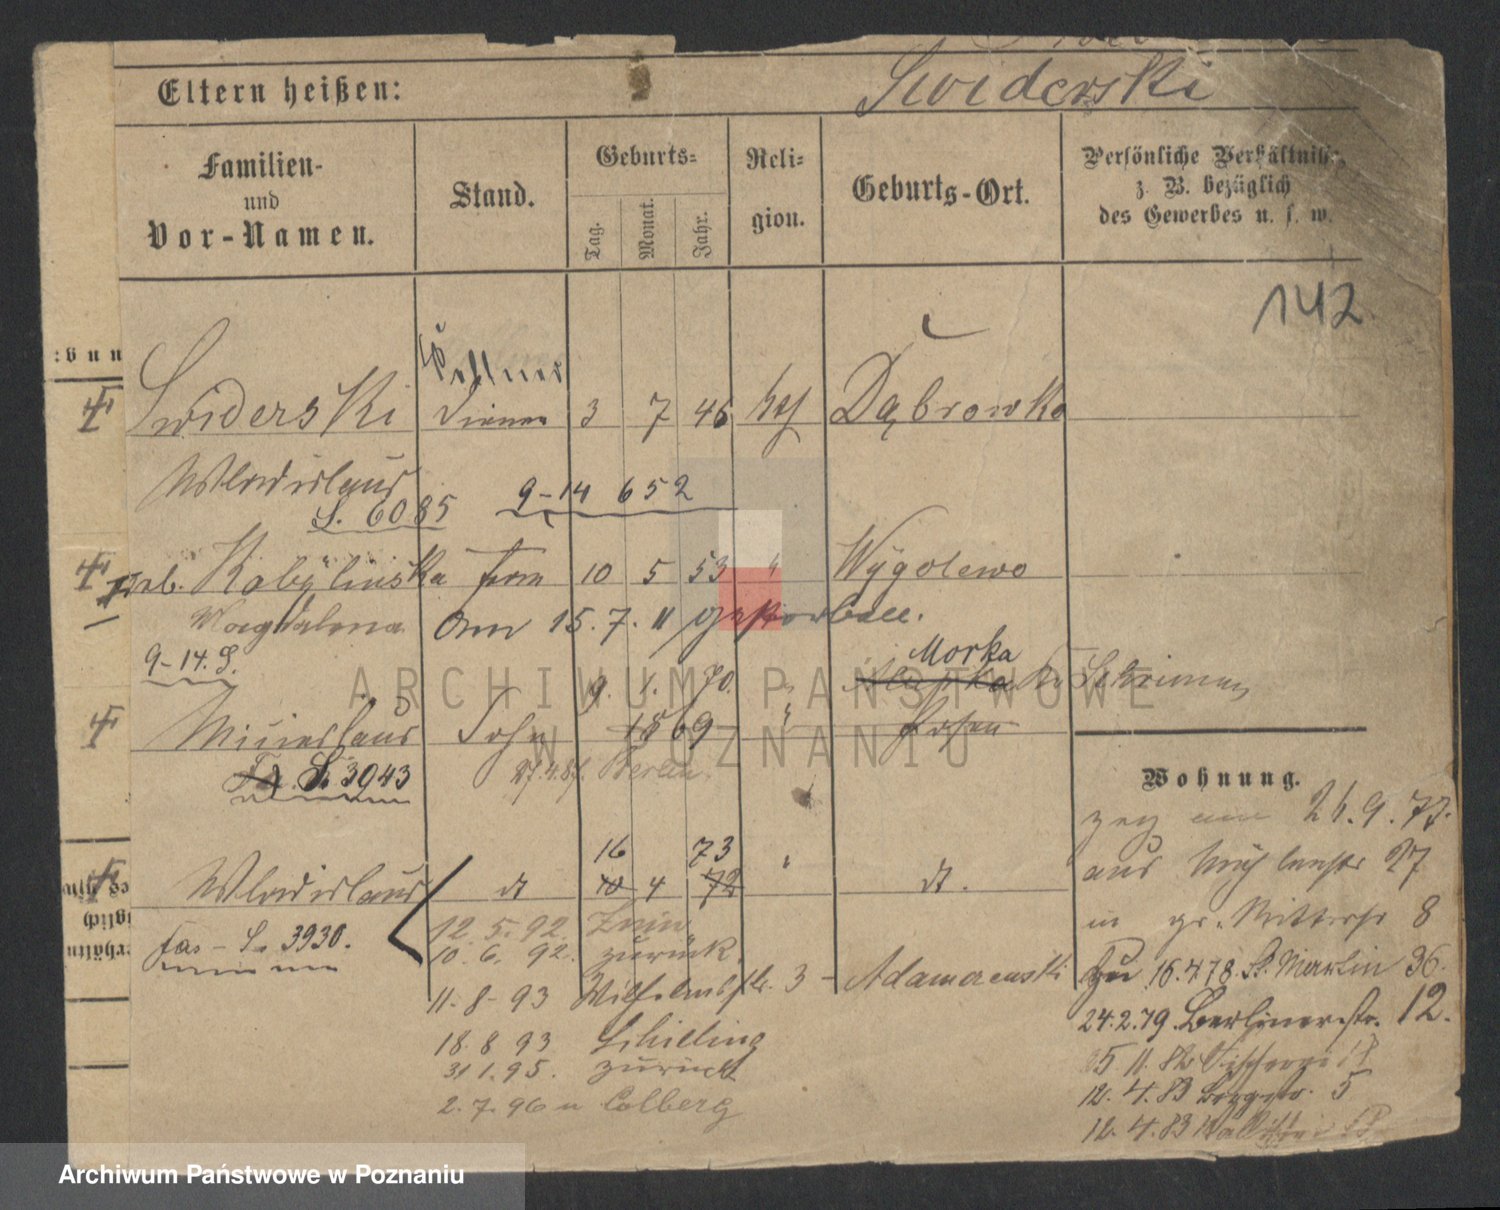 Eltern heißen:
Swiderski
Familien-
und
Vor-Namen.
Stand.
Geburts-
Tag.
Monat.
Jahr.
Reli-
gion.
Geburts-Ort.
Persönliche Verhältnisse,
z. B. bezüglich
des Gewerbes u. s. w.
142
Kellner
Swiderski Diener 3 7 46 kath Dąbrowka
Wladislaus
S. 6085
9-14 652
geb. Kobylinska Frau 10 5 53 " Wygolewo
Magdalena am 15.7.11 gestorben.
9-14. S.
Morka
9. 1. 70. "
Sohn 1869 " Posen
S. 3943
27.4.87. Berlin
16 73
Wladislaus dt 10 4 72 " dt.
Fas - S. 3930.
12. 5. 92. Znin
10. 6. 92. zurück.
11. 8. 93 Wilhelmstr. 3 - Adamczewski
18. 8 93 Schilling
31 1. 95. zurück
2. 7. 96 n Colberg
Wohnung.
zog am 26. 9. 77.
aus 27
in gr. Ritterstr 8
Zu 16.4.78. St. Martin 36.
24.2.79. Berlinerstr. 12.
5. 11. 82
12. 4. 83 5
12. 4. 83
ARCHIWUM PAŃSTWOWE
W POZNANIU
Archiwum Państwowe w Poznaniu